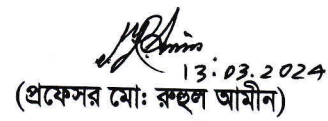 13.03.2024
(প্রফেসর মোঃ রুহুল আমীন)